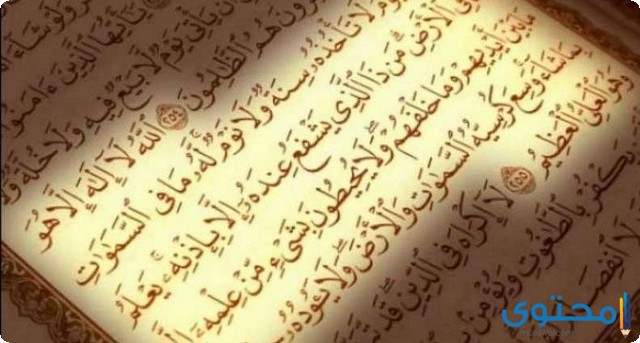 وَلَوْ شَآءَ
يَٰٓأَيُّهَا ٱلَّذِينَ ءَامَنُوٓا۟
أَن يَأْتِىَ يَوْمٌ لَّا بَيْعٌ فِيهِ وَلَا خُلَّةٌ وَلَا
هُمُ ٱلظَّٰلِمُونَ ٢٥٤ ٱللَّهُ لَآ إِلَٰهَ إِلَّا هُوَ
لَا تَأْخُذُهُۥ سِنَةٌ وَلَا نَوْمٌ لَّهُۥ مَا فِى ٱلسَّمَٰوَٰتِ
فِى ٱلْأَرْضِ مَن ذَا ٱلَّذِى يَشْفَعُ عِندَهُۥٓ إِلَّا بِإِذْنِهِۦ يَعْلَمُ
مَا بَيْنَ أَيْدِيهِمْ وَمَا خَلْفَهُمْ وَلَا يُحِيطُونَ بِشَىْءٍ مِّنْ عِلْمِهِۦٓ إِلَّا
بِمَا شَآءَ وَسِعَ كُرْسِيُّهُ ٱلسَّمَٰوَٰتِ وَٱلْأَرْضَ وَلَا يَـُٔودُهُۥ
وَهُوَ ٱلْعَلِىُّ ٱلْعَظِيمُ ٢٥٥ لَآ إِكْرَاهَ فِى ٱلدِّينِ قَد تَّبَيَّنَ
يَكْفُرْ بِٱلطَّٰغُوتِ وَيُؤْمِنۢ
لَا ٱنفِصَامَ
محتوى